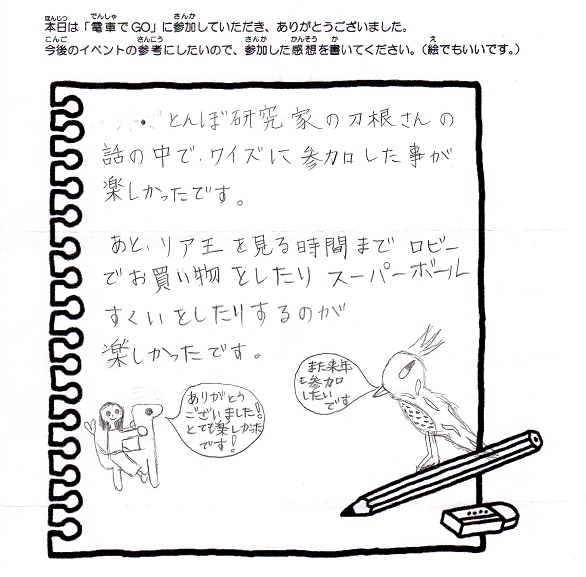 本日は「電車でGO」に参加していただき、ありがとうございました。
今後のイベントの参考にしたいので、参加した感想を書いてください。（絵でもいいです。）
・とんぼ研究家の刀根さんの
話の中で、ワイズに参加した事が
楽しかったです。
あと、リア王を見る時間までロビー
でお買い物をしたりスーパーボール
すくいをしたりするのが
楽しかったです。
また来年
も参加
したい
です
ありがとう
ございました!
とても楽しかった
です!